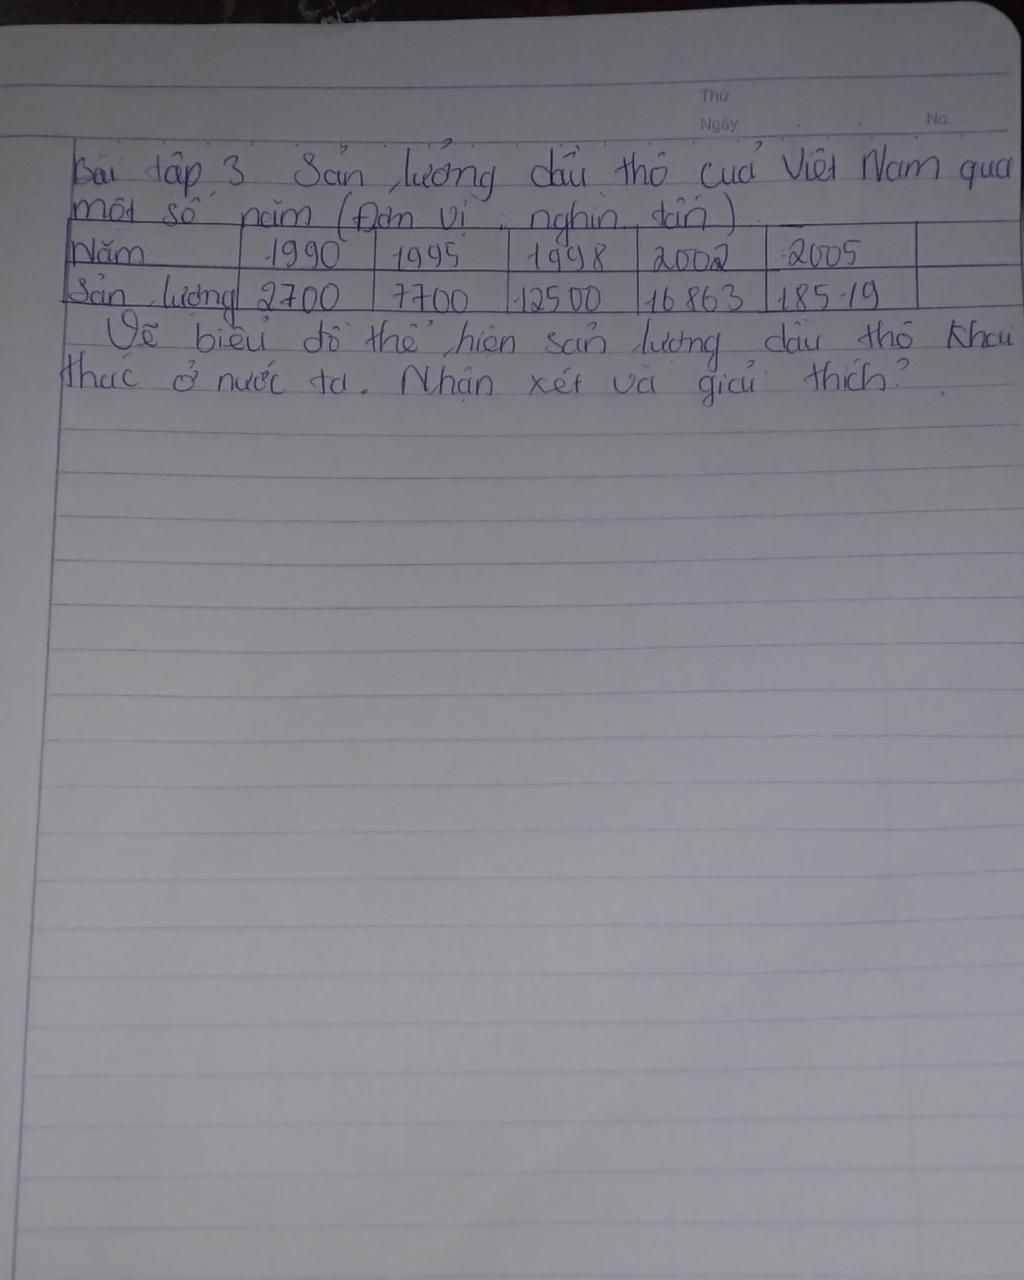 Thứ
Ngày No.
Bài tập 3 Sản lưởng dầu thô của Việt Nam qua
một số năm (Đơn vị : nghìn tấn)
Năm 1990 1995 1998 2002 2005
Sản lượng 2700 7700 12500 16863 185.19
Vẽ biểu đồ thể hiện sản lượng dầu thô khai
thác ở nước ta. Nhận xét và giải thích?